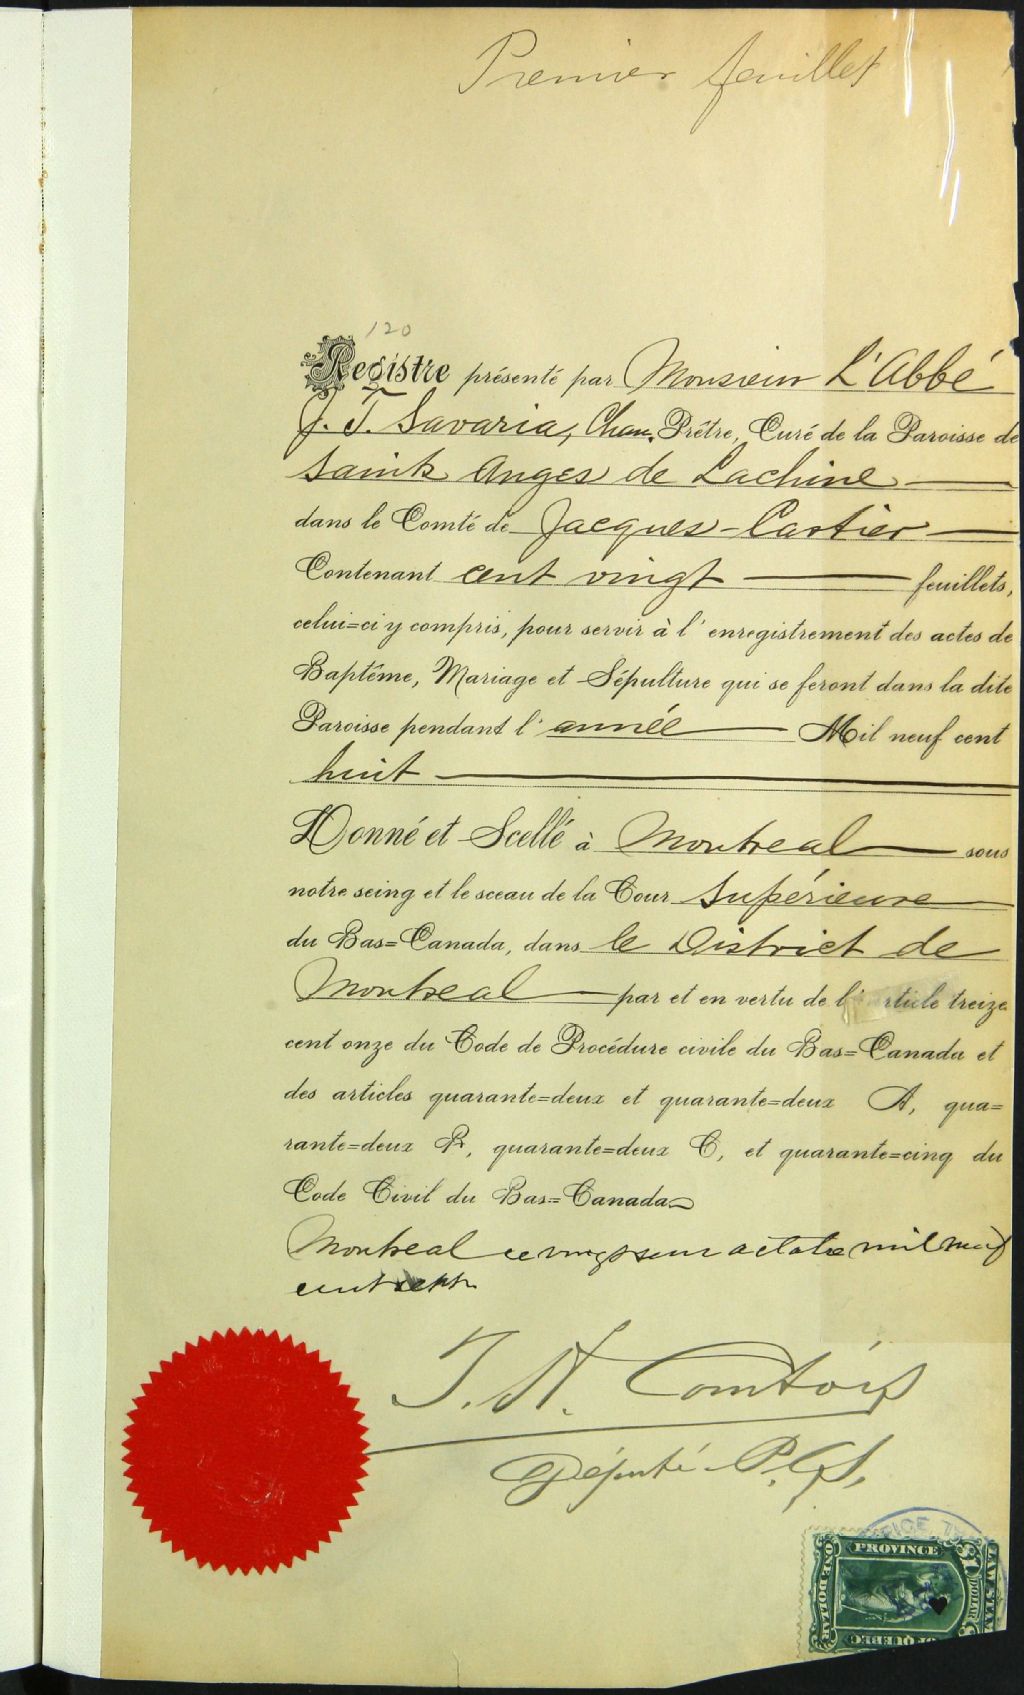 Premier feuillet
120
Registre présenté par Monsieur L'Abbé
J. T. Savaria, Chan. Prêtre, Curé de la Paroisse de
Saints Anges de Lachine
dans le Comté de Jacques-Cartier
Contenant cent vingt feuillets,
celui=ci y compris, pour servir à l'enregistrement des actes de
Baptême, Mariage et Sépulture qui se feront dans la dite
Paroisse pendant l'année Mil neuf cent
huit
Donné et Scellé à Montreal sous
notre seing et le sceau de la Cour Supérieure
du Bas=Canada, dans le District de
Montreal par et en vertu de l'article treize
cent onze du Code de Procédure civile du Bas=Canada et
des articles quarante=deux et quarante=deux A, qua=
rante=deux B, quarante=deux C, et quarante=cinq du
Code Civil du Bas=Canada
Montreal ce octobre mil neuf
cent sept
J. N. Comtois
Député P.C.S.
PROVINCE
ONE DOLLAR
$1
DOLLAR
LAW STAMP
QUEBEC